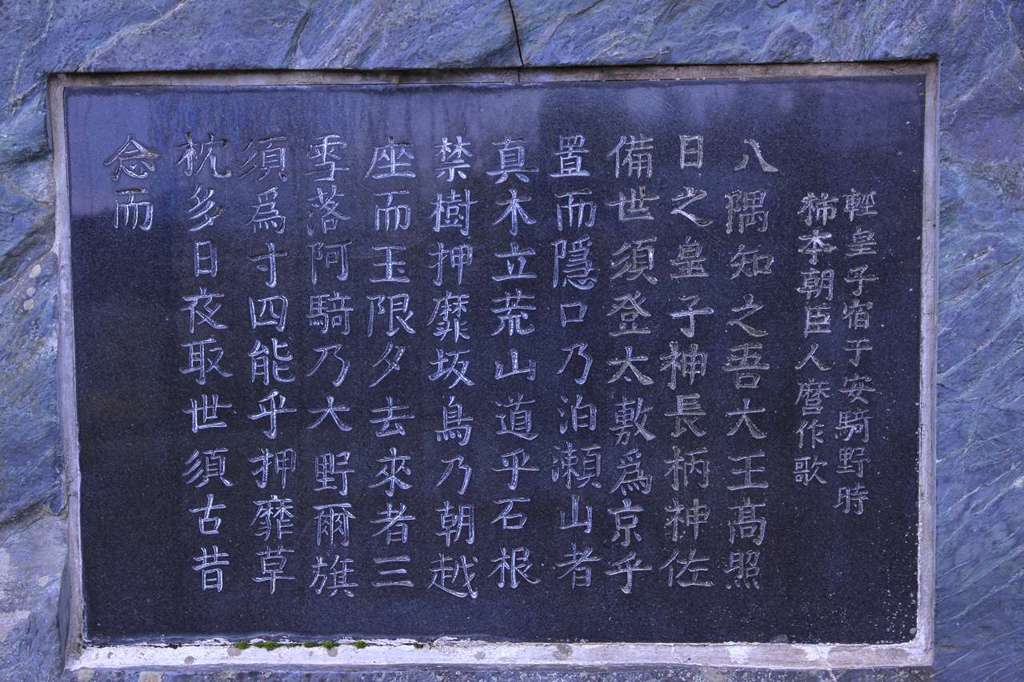 輕皇子宿于安騎野時
柿本朝臣人麿作歌
八隅知之吾大王高照
日之皇子神長柄神佐
備世須登太敷為京乎
置而隱口乃泊瀬山者
真木立荒山道乎石根
禁樹押靡坂鳥乃朝越
座而玉限夕去來者三
雪落阿騎乃大野爾旗
須為寸四能乎押靡草
枕多日夜取世須古昔
念而